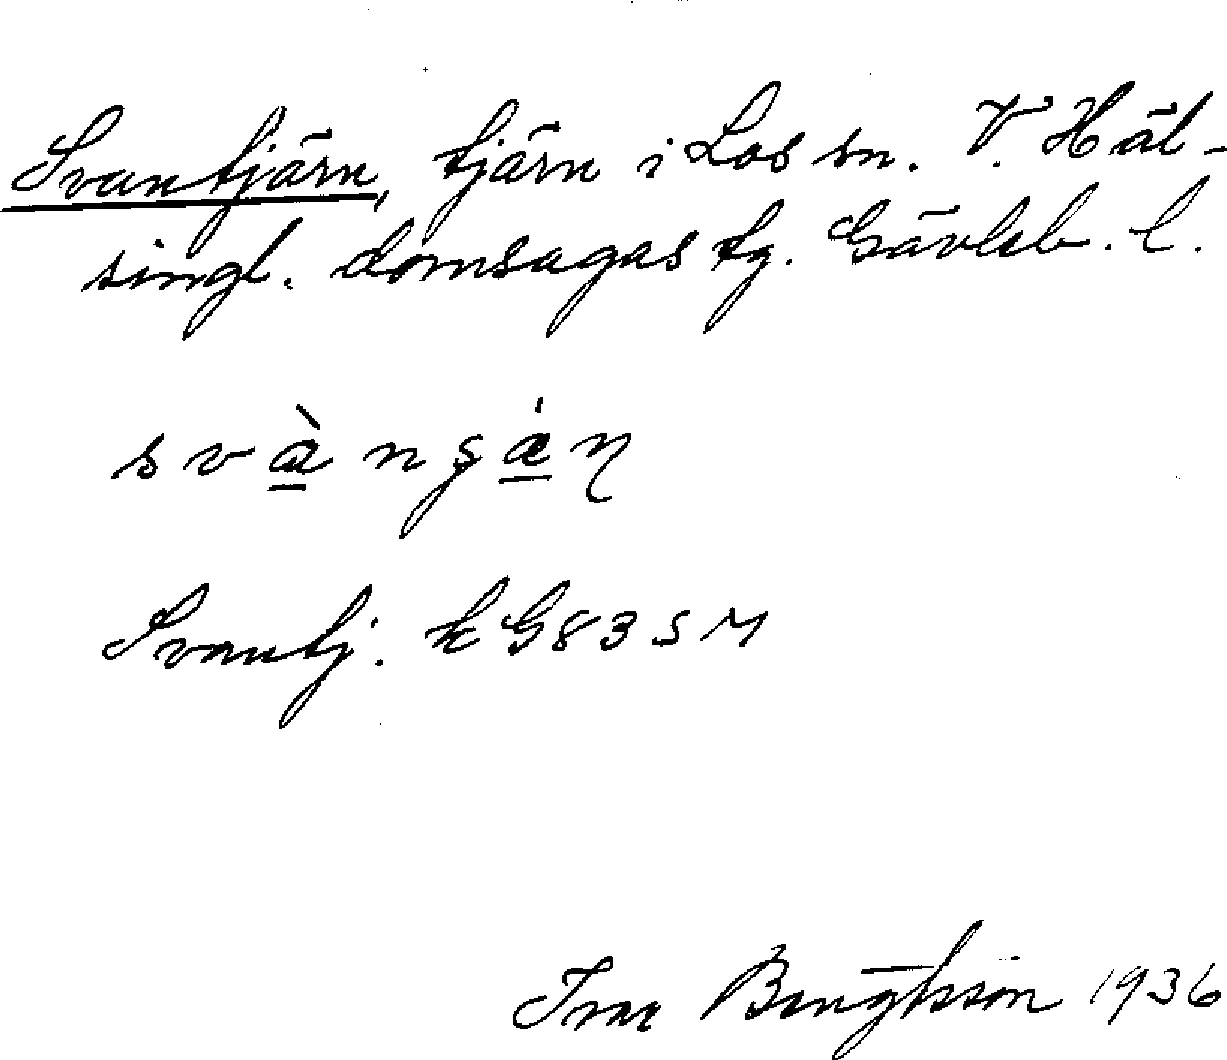 Svantjärn, tjärn i Los sn. V. Häl-
singl. domsagas tg. Gävleb. l.
Svantj. k G83SM
Ivar Bengtsson 1936